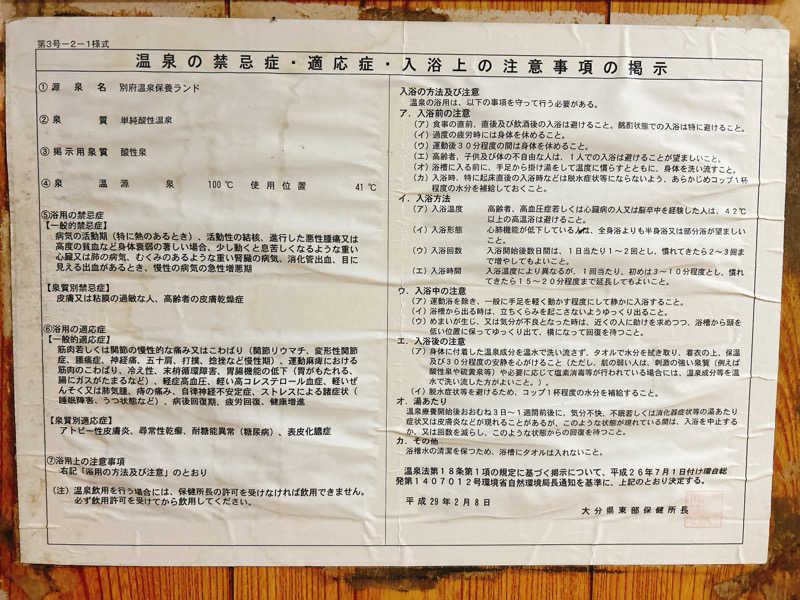 第3号-2-1様式
温泉の禁忌症・適応症・入浴上の注意事項の掲示
①源泉名 別府温泉保養ランド
②泉質 単純酸性温泉
③掲示用泉質 酸性泉
④泉温 源泉 100℃ 使用位置 41℃
⑤浴用の禁忌症
【一般的禁忌症】
病気の活動期(特に熱のあるとき)、活動性の結核、進行した悪性腫瘍又は
高度の貧血など身体衰弱の著しい場合、少し動くと息苦しくなるような重い
心臓又は肺の病気、むくみのあるような重い腎臓の病気、消化管出血、目に
見える出血があるとき、慢性の病気の急性増悪期
【泉質別禁忌症】
皮膚又は粘膜の過敏な人、高齢者の皮膚乾燥症
⑥浴用の適応症
【一般的適応症】
筋肉若しくは関節の慢性的な痛み又はこわばり(関節リウマチ、変形性関節
症、腰痛症、神経痛、五十肩、打撲、捻挫など慢性期)、運動麻痺における
筋肉のこわばり、冷え性、末梢循環障害、胃腸機能の低下(胃がもたれる、
腸にガスがたまるなど)、軽症高血圧、軽い高コレステロール血症、軽いぜ
んそく又は肺気腫、痔の痛み、自律神経不安定症、ストレスによる諸症状(
睡眠障害、うつ状態など)、病後回復期、疲労回復、健康増進
【泉質別適応症】
アトピー性皮膚炎、尋常性乾癬、耐糖能異常(糖尿病)、表皮化膿症
⑦浴用上の注意事項
右記「浴用の方法及び注意」のとおり
(注)温泉飲用を行う場合には、保健所長の許可を受けなければ飲用できません。
必ず飲用許可を受けてから飲用してください。
入浴の方法及び注意
温泉の浴用は、以下の事項を守って行う必要がある。
ア.入浴前の注意
(ア)食事の直前、直後及び飲酒後の入浴は避けること。酩酊状態での入浴は特に避けること。
(イ)過度の疲労時には身体を休めること。
(ウ)運動後30分程度の間は身体を休めること。
(エ)高齢者、子供及び体の不自由な人は、1人での入浴は避けることが望ましいこと。
(オ)浴槽に入る前に、手足から掛け湯をして温度に慣らすとともに、身体を洗い流すこと。
(カ)入浴時、特に起床直後の入浴時などは脱水症状等にならないよう、あらかじめコップ1杯
程度の水分を補給しておくこと。
イ.入浴方法
(ア)入浴温度 高齢者、高血圧症若しくは心臓病の人又は脳卒中を経験した人は、42℃
以上の高温浴は避けること。
(イ)入浴形態 心肺機能が低下している人は、全身浴よりも半身浴又は部分浴が望まし
いこと。
(ウ)入浴回数 入浴開始後数日間は、1日当たり1~2回とし、慣れてきたら2~3回ま
で増やしてもよいこと。
(エ)入浴時間 入浴温度により異なるが、1回当たり、初めは3~10分程度とし、慣れ
てきたら15~20分程度まで延長してもよいこと。
ウ.入浴中の注意
(ア)運動浴を除き、一般に手足を軽く動かす程度にして静かに入浴すること。
(イ)浴槽から出る時は、立ちくらみを起こさないようゆっくり出ること。
(ウ)めまいが生じ、又は気分が不良となった時は、近くの人に助けを求めつつ、浴槽から頭を
低い位置に保ってゆっくり出て、横になって回復を待つこと。
エ.入浴後の注意
(ア)身体に付着した温泉成分を温水で洗い流さず、タオルで水分を拭き取り、着衣の上、保温
及び30分程度の安静を心がけること(ただし、肌の弱い人は、刺激の強い泉質(例えば
酸性泉や硫黄泉等)や必要に応じて塩素消毒等が行われている場合には、温泉成分等を温
水で洗い流した方がよいこと。)。
(イ)脱水症状等を避けるため、コップ1杯程度の水分を補給すること。
オ.湯あたり
温泉療養開始後おおむね3日~1週間前後に、気分不快、不眠若しくは消化器症状等の湯あたり
症状又は皮膚炎などが現れることがあるが、このような状態が現れている間は、入浴を中止する
か、又は回数を減らし、このような状態からの回復を待つこと。
カ.その他
浴槽水の清潔を保つため、浴槽にタオルは入れないこと。
温泉法第18条第1項の規定に基づく掲示について、平成26年7月1日付け環自総
発第1407012号環境省自然環境局長通知を基準に、上記のとおり決定する。
平成29年2月8日
大分県東部保健所長